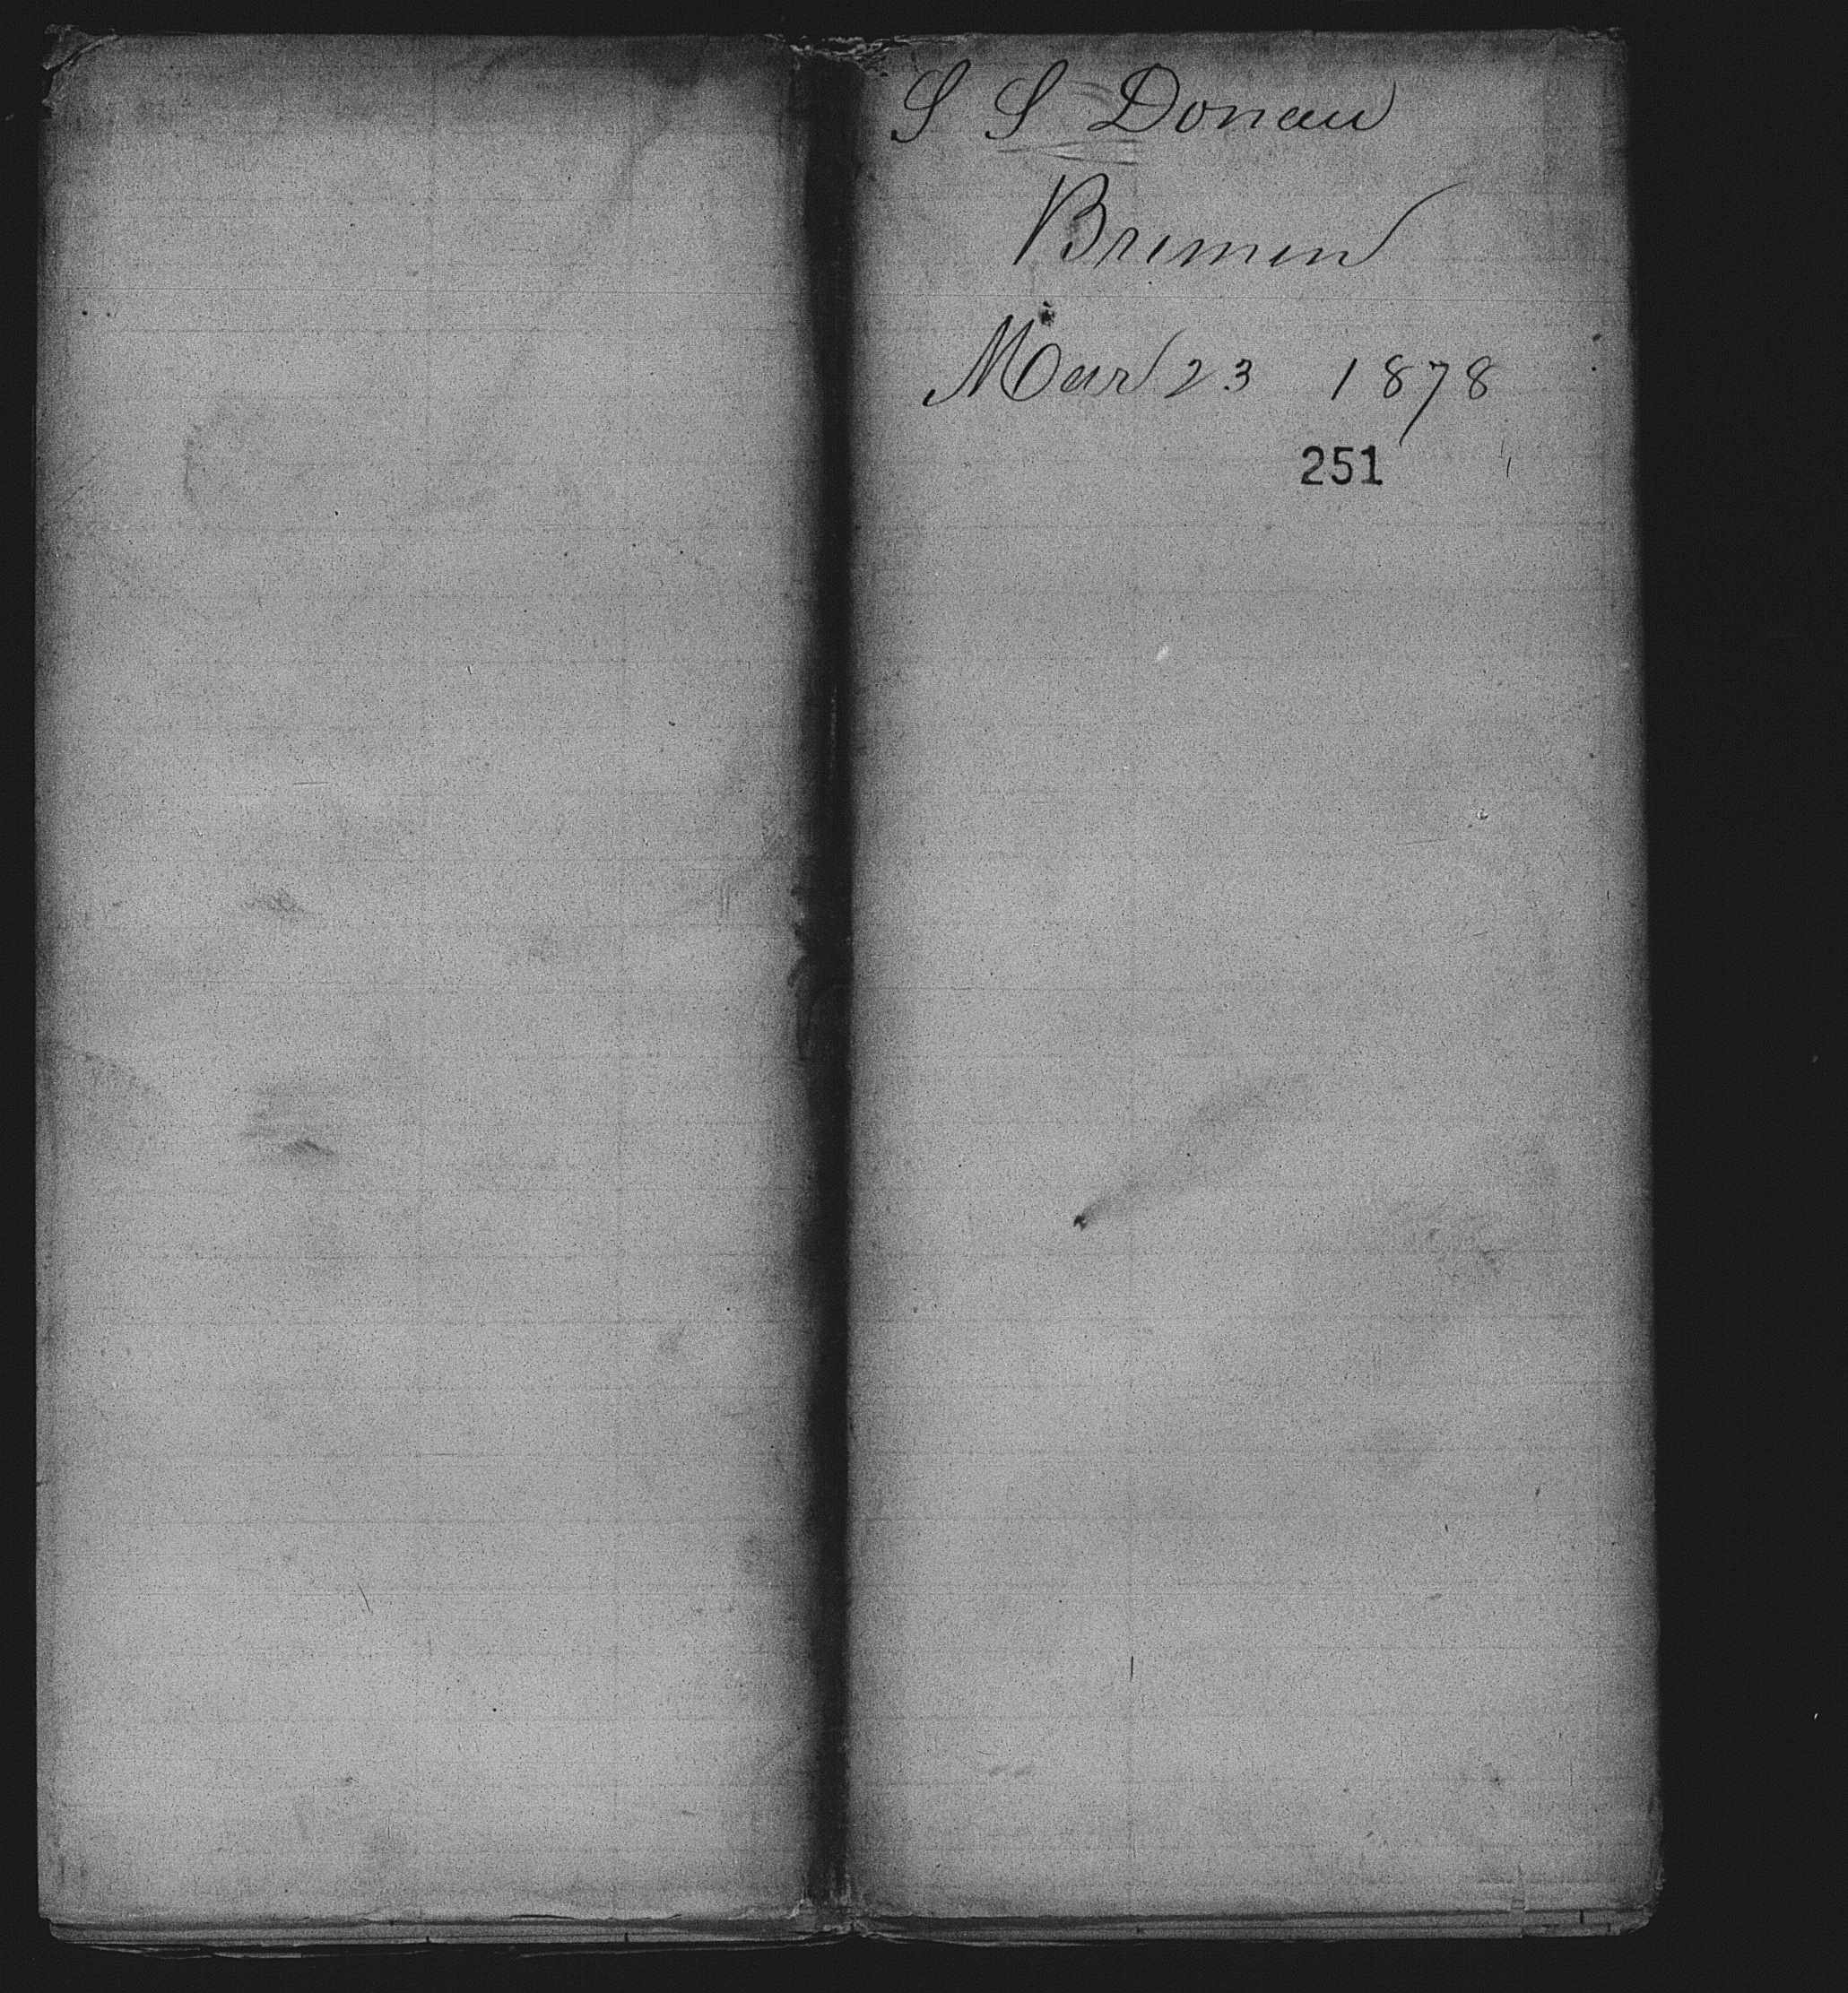 S S Donau
Bremen
Mar 23 1878
251